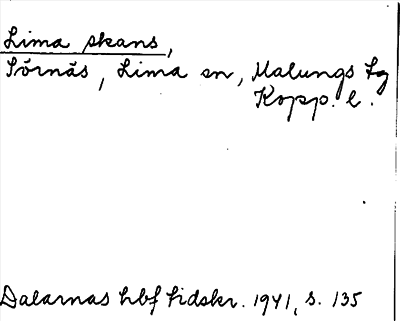 Lima skans,
Sörnäs, Lima sn, Malungs tg
Kopp. l.
Dalarnas hbf tidskr. 1941, s. 135